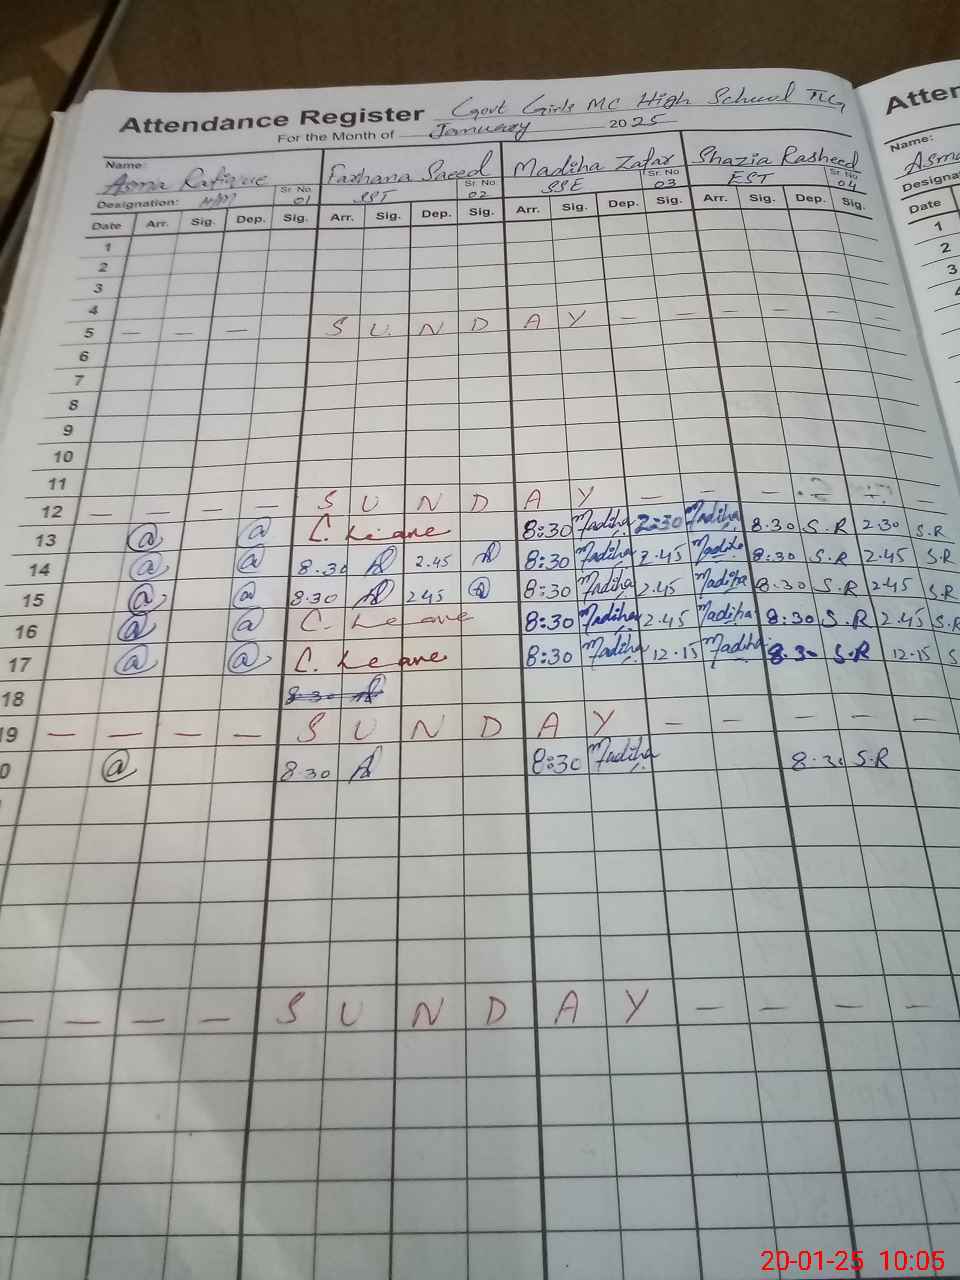 Attendance Register Govt Girls MC High School TTG
For the Month of January 2025
Name: Asma Rafique Farhana Saeed Madiha Zafar Shazia Rasheed
Designation: H/M Sr No 01 SST Sr No 02 SSE Sr No 03 EST Sr No 04
Date Arr. Sig. Dep. Sig. Arr. Sig. Dep. Sig. Arr. Sig. Dep. Sig. Arr. Sig. Dep. Sig.
1
2
3
4
5 — — — S U N D A Y — — — — — —
6
7
8
9
10
11
12 — — — — S U N D A Y — — —
13 @ @ C. Leave 8:30 Madiha 2:30 Madiha 8.30 S.R 2.30 S.R
14 @ @ 8.30 2.45 8:30 Madiha 2.45 Madiha 8:30 S.R 2.45 S.R
15 @ @ 8.30 2.45 8:30 Madiha 2.45 Madiha 8.30 S.R 2.45 S.R
16 @ @ C. Leave 8:30 Madiha 2.45 Madiha 8:30 S.R 2.45 S.R
17 @ @ C. Leave 8:30 Madiha 12.15 Madiha 8.30 S.R 12.15 S
18 8 30
19 — — — — S U N D A Y — — — — —
0 @ 8.30 8:30 Madiha 8.30 S.R
— — — — S U N D A Y — — — —
Atten
Name:
Asma
Designa
Date
1
2
3
4
20-01-25 10:05